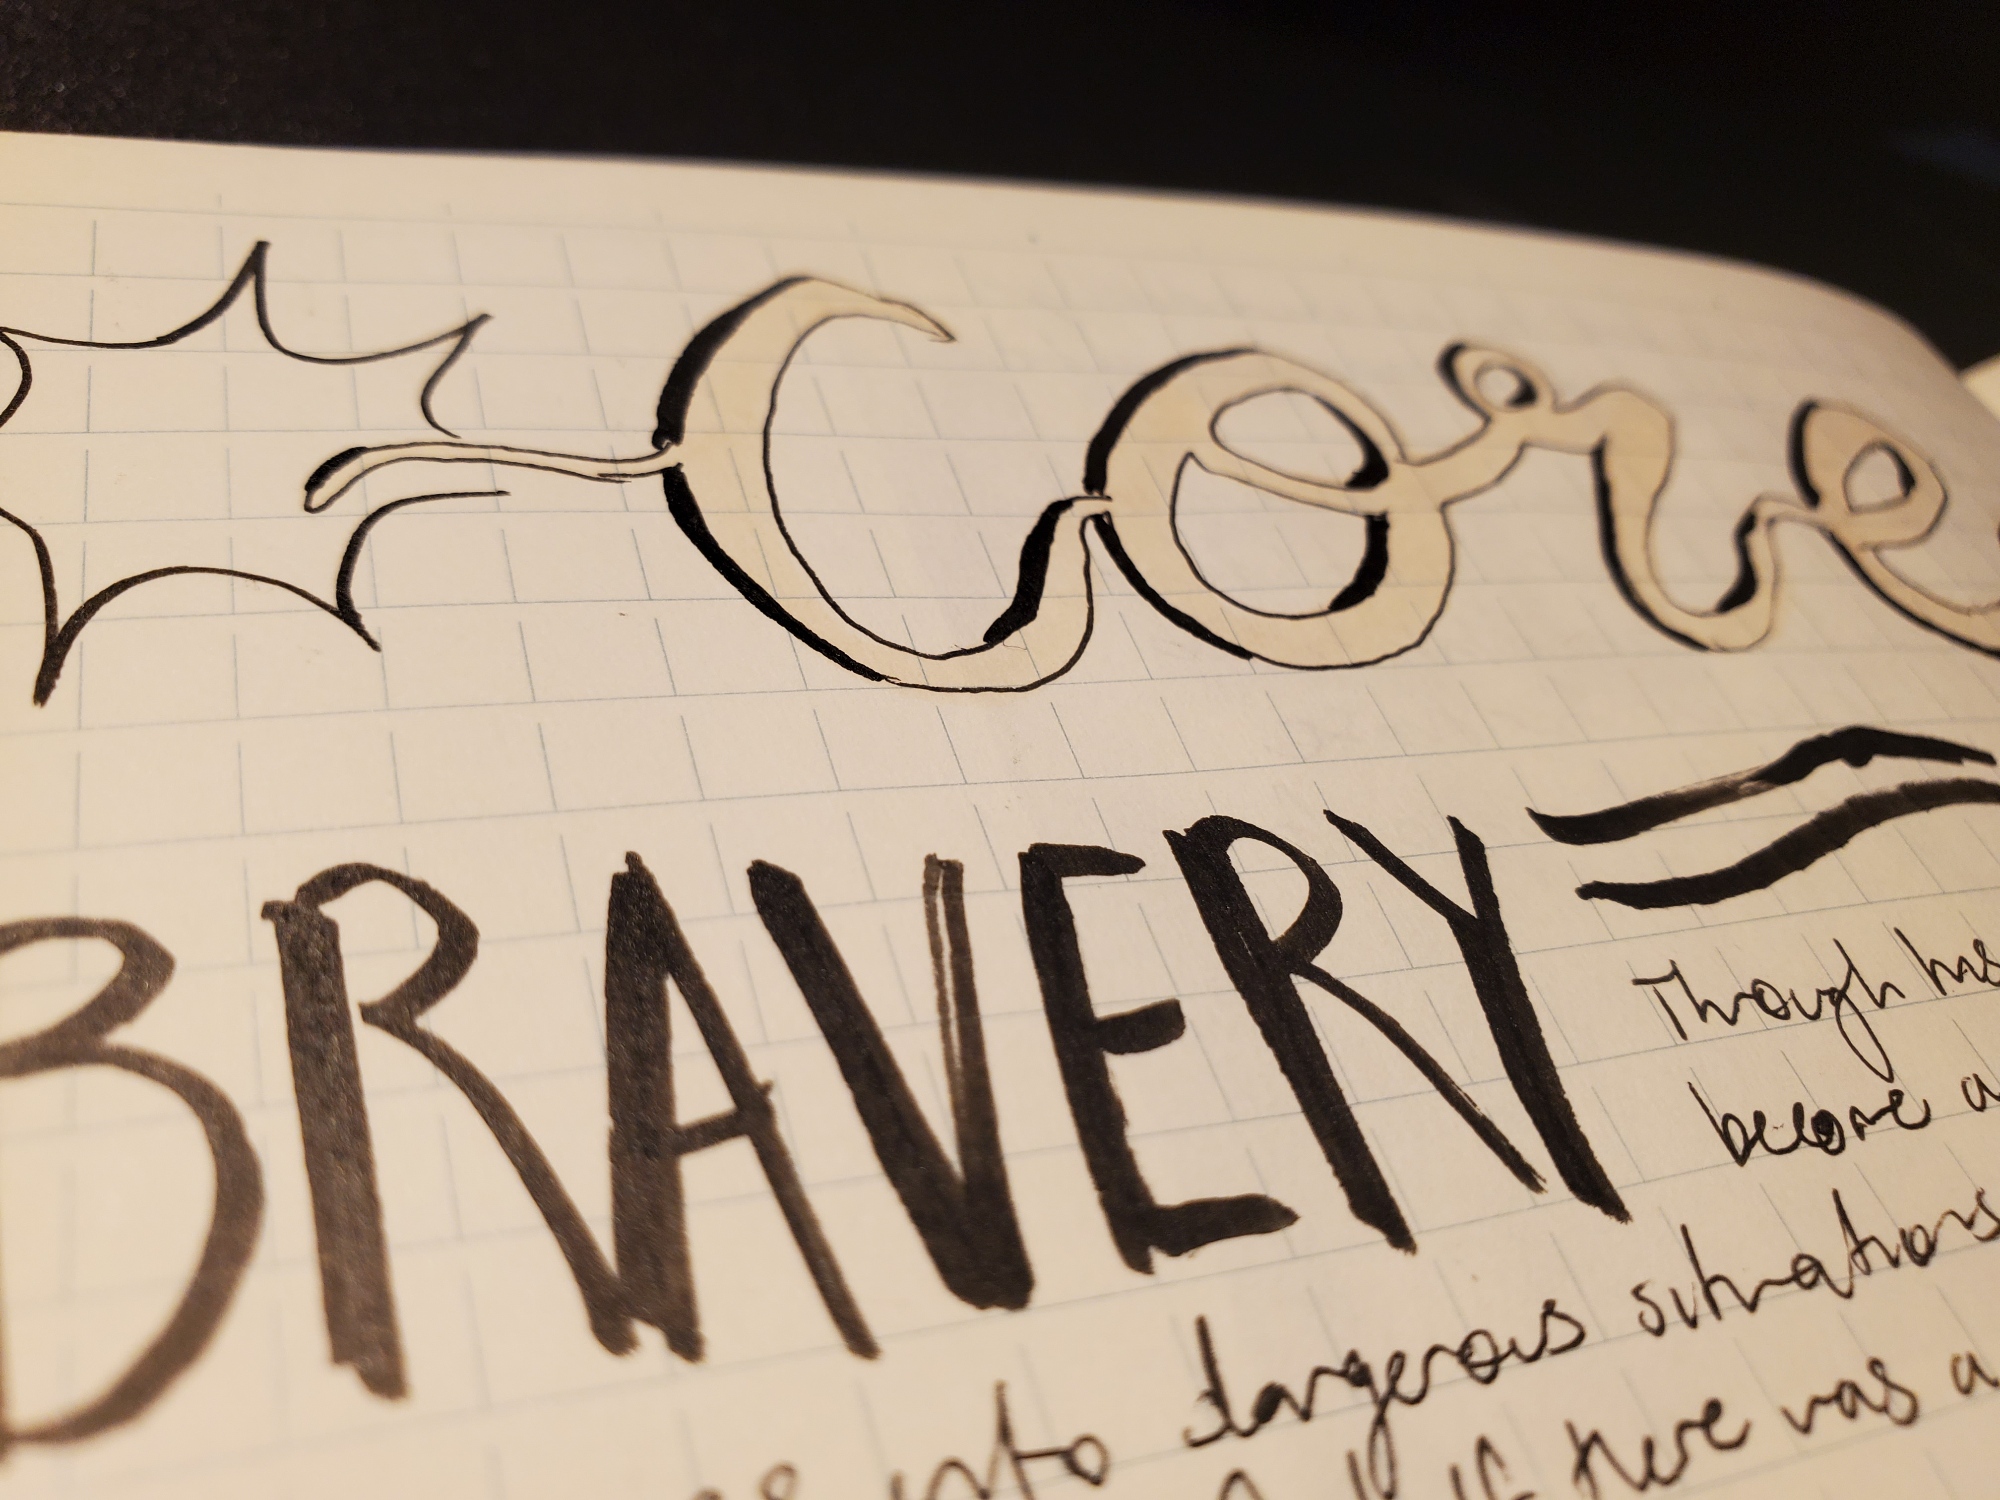 Core
BRAVERY
Though his
become a
into dangerous situations
If there was a